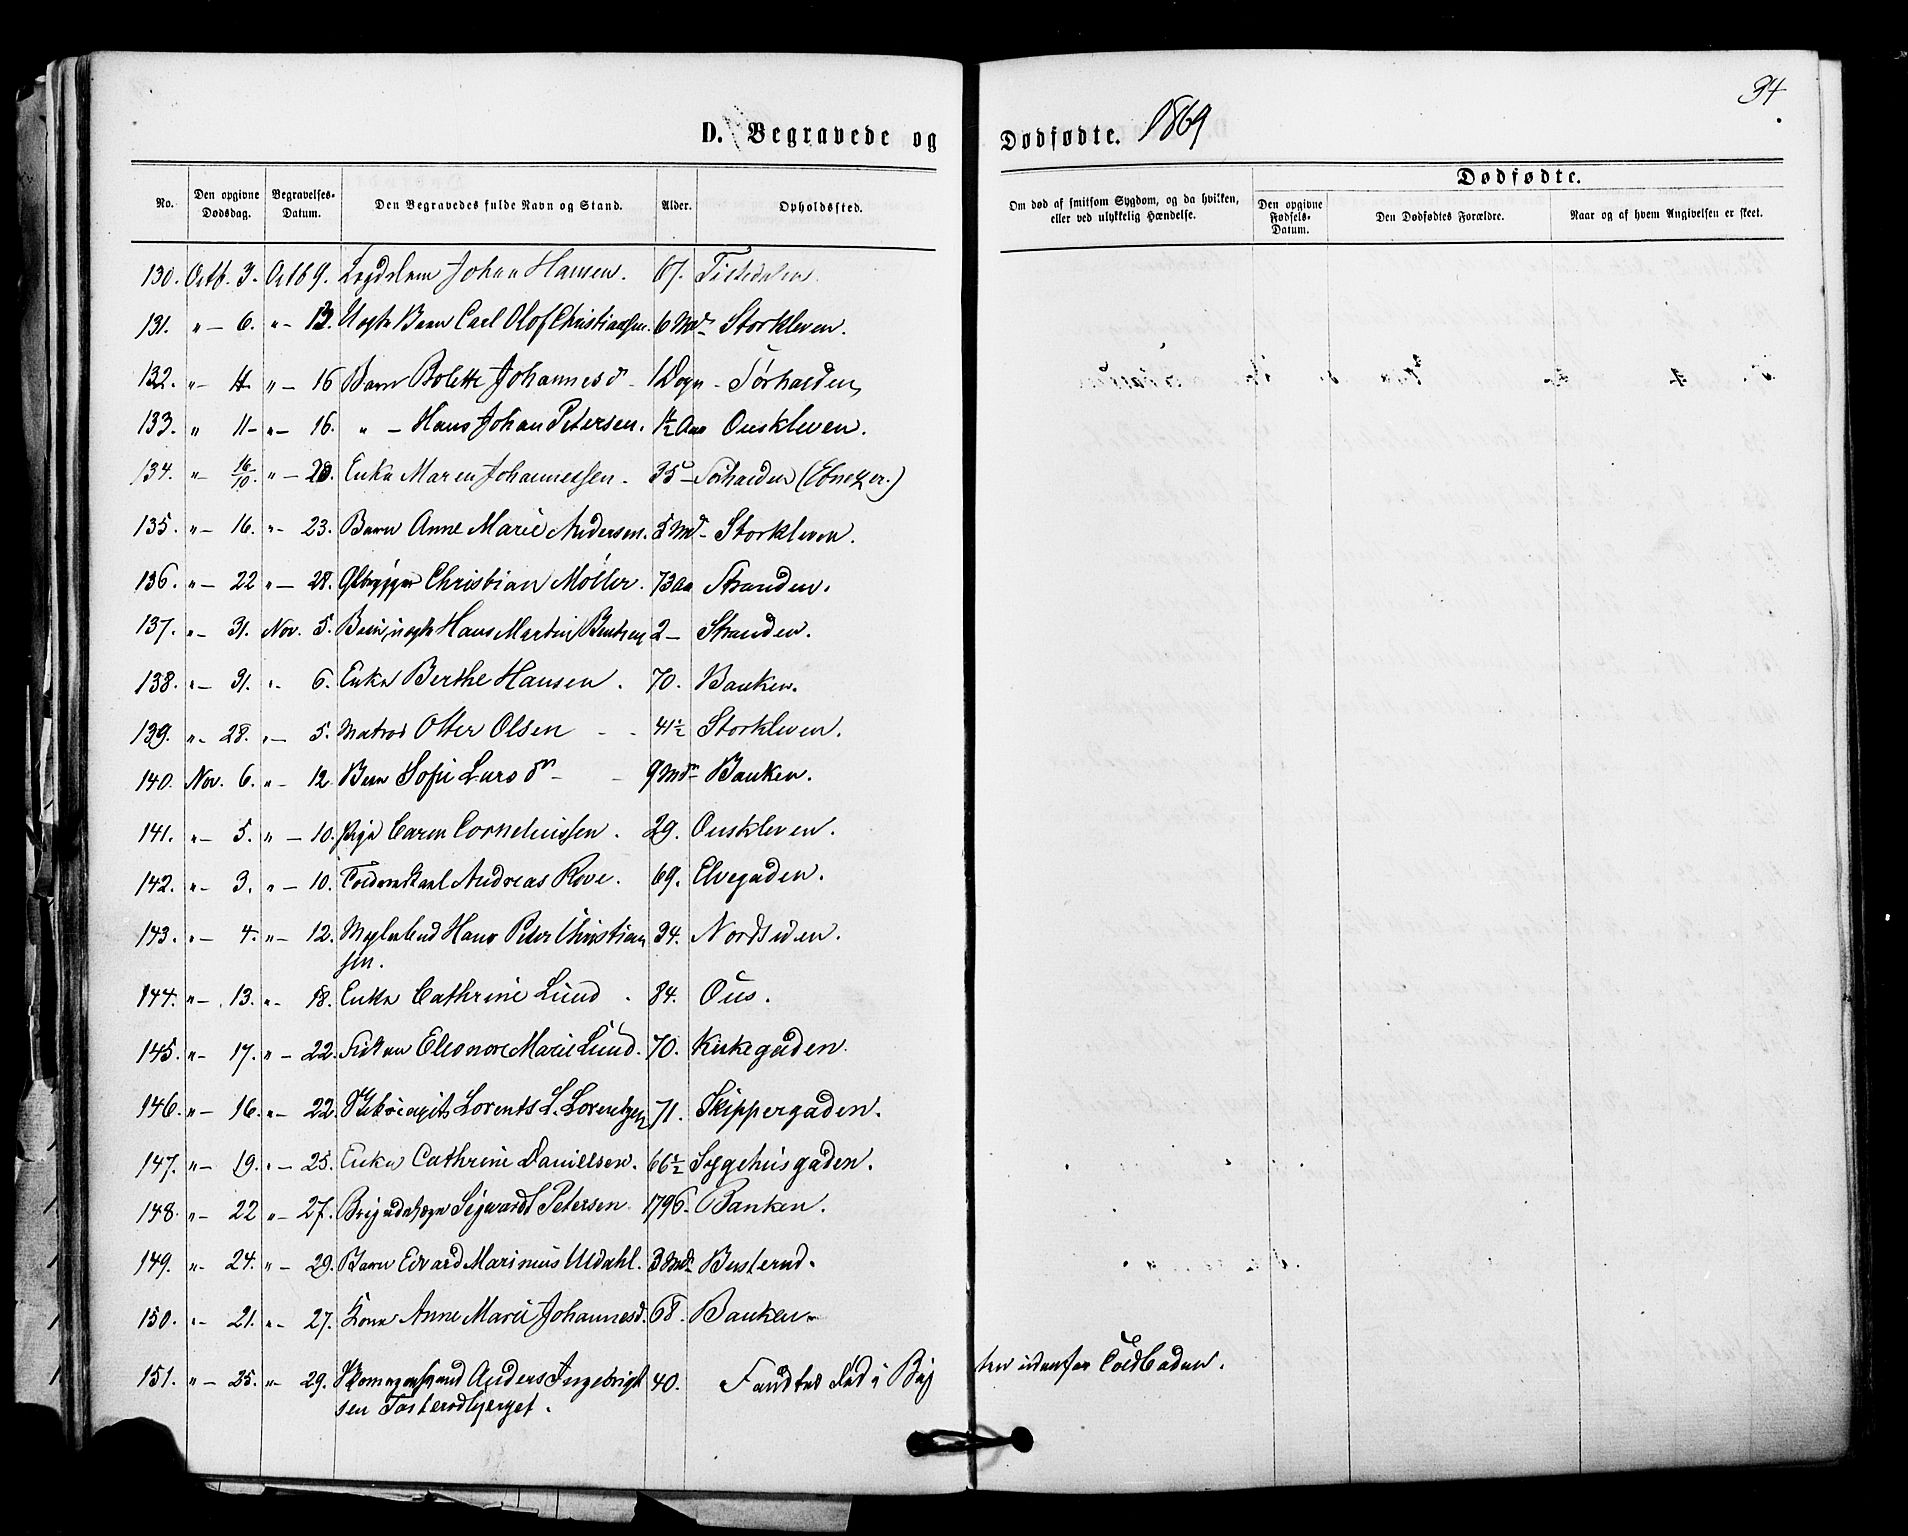 34
D. Begravede og Dødfødte. 1869
No. Den opgivne Dødsdag. Begravelses-Datum. Den Begravedes fulde Navn og Stand. Alder. Opholdssted. Om død af smitsom Sygdom, og da hvilken, eller ved ulykkelig Hændelse. Dødfødte.
Den opgivne Fødsels-Datum. Den Dødfødtes Forældre. Naar og af hvem Angivelsen er skeet.
130. Octb. 3. Octb 9. Lægdslem Johan Hansen. 67. Tistedalen.
131. " – 6. " – 13. Uægte Barn Carl Olof Christiansen. 6 Md. Storkleven.
132. " – 11 " – 16 Barn Bolette Johannesd – 1 Døgn – Sørhalden
133. " 11 – " – 16. " – Hans Johan Petersen. 1½ Aar Ouskleven.
134. " – 16/10. " – 23. Enke Maren Johannessen. 35 – Sørhalden
135. " – 16. " – 23. Barn Anne Marie Andersen. 5 Md – Storkleven.
136. " – 22 " – 28. Christian Møller. 73 Aa Stranden.
137. " – 31. Nov. 5. Barn, uægte Hans Martin Bentsen 2 – Stranden.
138. " – 31. " – 6. Enke Berthe Hansen. 70. Banken.
139. " – 28. " – 5. Matros Otter Olsen – – 41½ Storkleven.
140. Nov. 6. " – 12. Barn Sofie Larsdr – – 9 Md. Banken.
141. " – 5. " – 10. Pige Caren Corneliussen. 29. Ouskleven.
142. " – 3. " – 10. Andreas Rove. 69. Elvegaden.
143. " – 4. " – 12. Hans Peter Christian 34. Nordsiden.
sen.
144. " – 13. " – 18. Enke Cathrine Lund. 84. Ous.
145. " – 17. " – 22. Eleonore Marie Lund. 70. Kirkegaden.
146. " – 16. " – 22. Lorents L. Lorentzen 71. Skippergaden.
147. " – 19. " – 25. Enke Cathrine Danielsen. 66½ Sygehusgaden.
148. " – 22 " – 27. Sigvardt Petersen. 1796. Banken.
149. " – 24. " – 29. Barn Edvard Marinius Uldahl. 3 Md. Busterud.
150. " – 21. " – 27. Kone Anne Marie Johannesd. 68. Banken.
151. " – 25. " – 29. Skomagersvend Anders Ingebrigt 40. Fandtes død i Bugten udenfor Toldboden.
sen Tosterødbjerget.